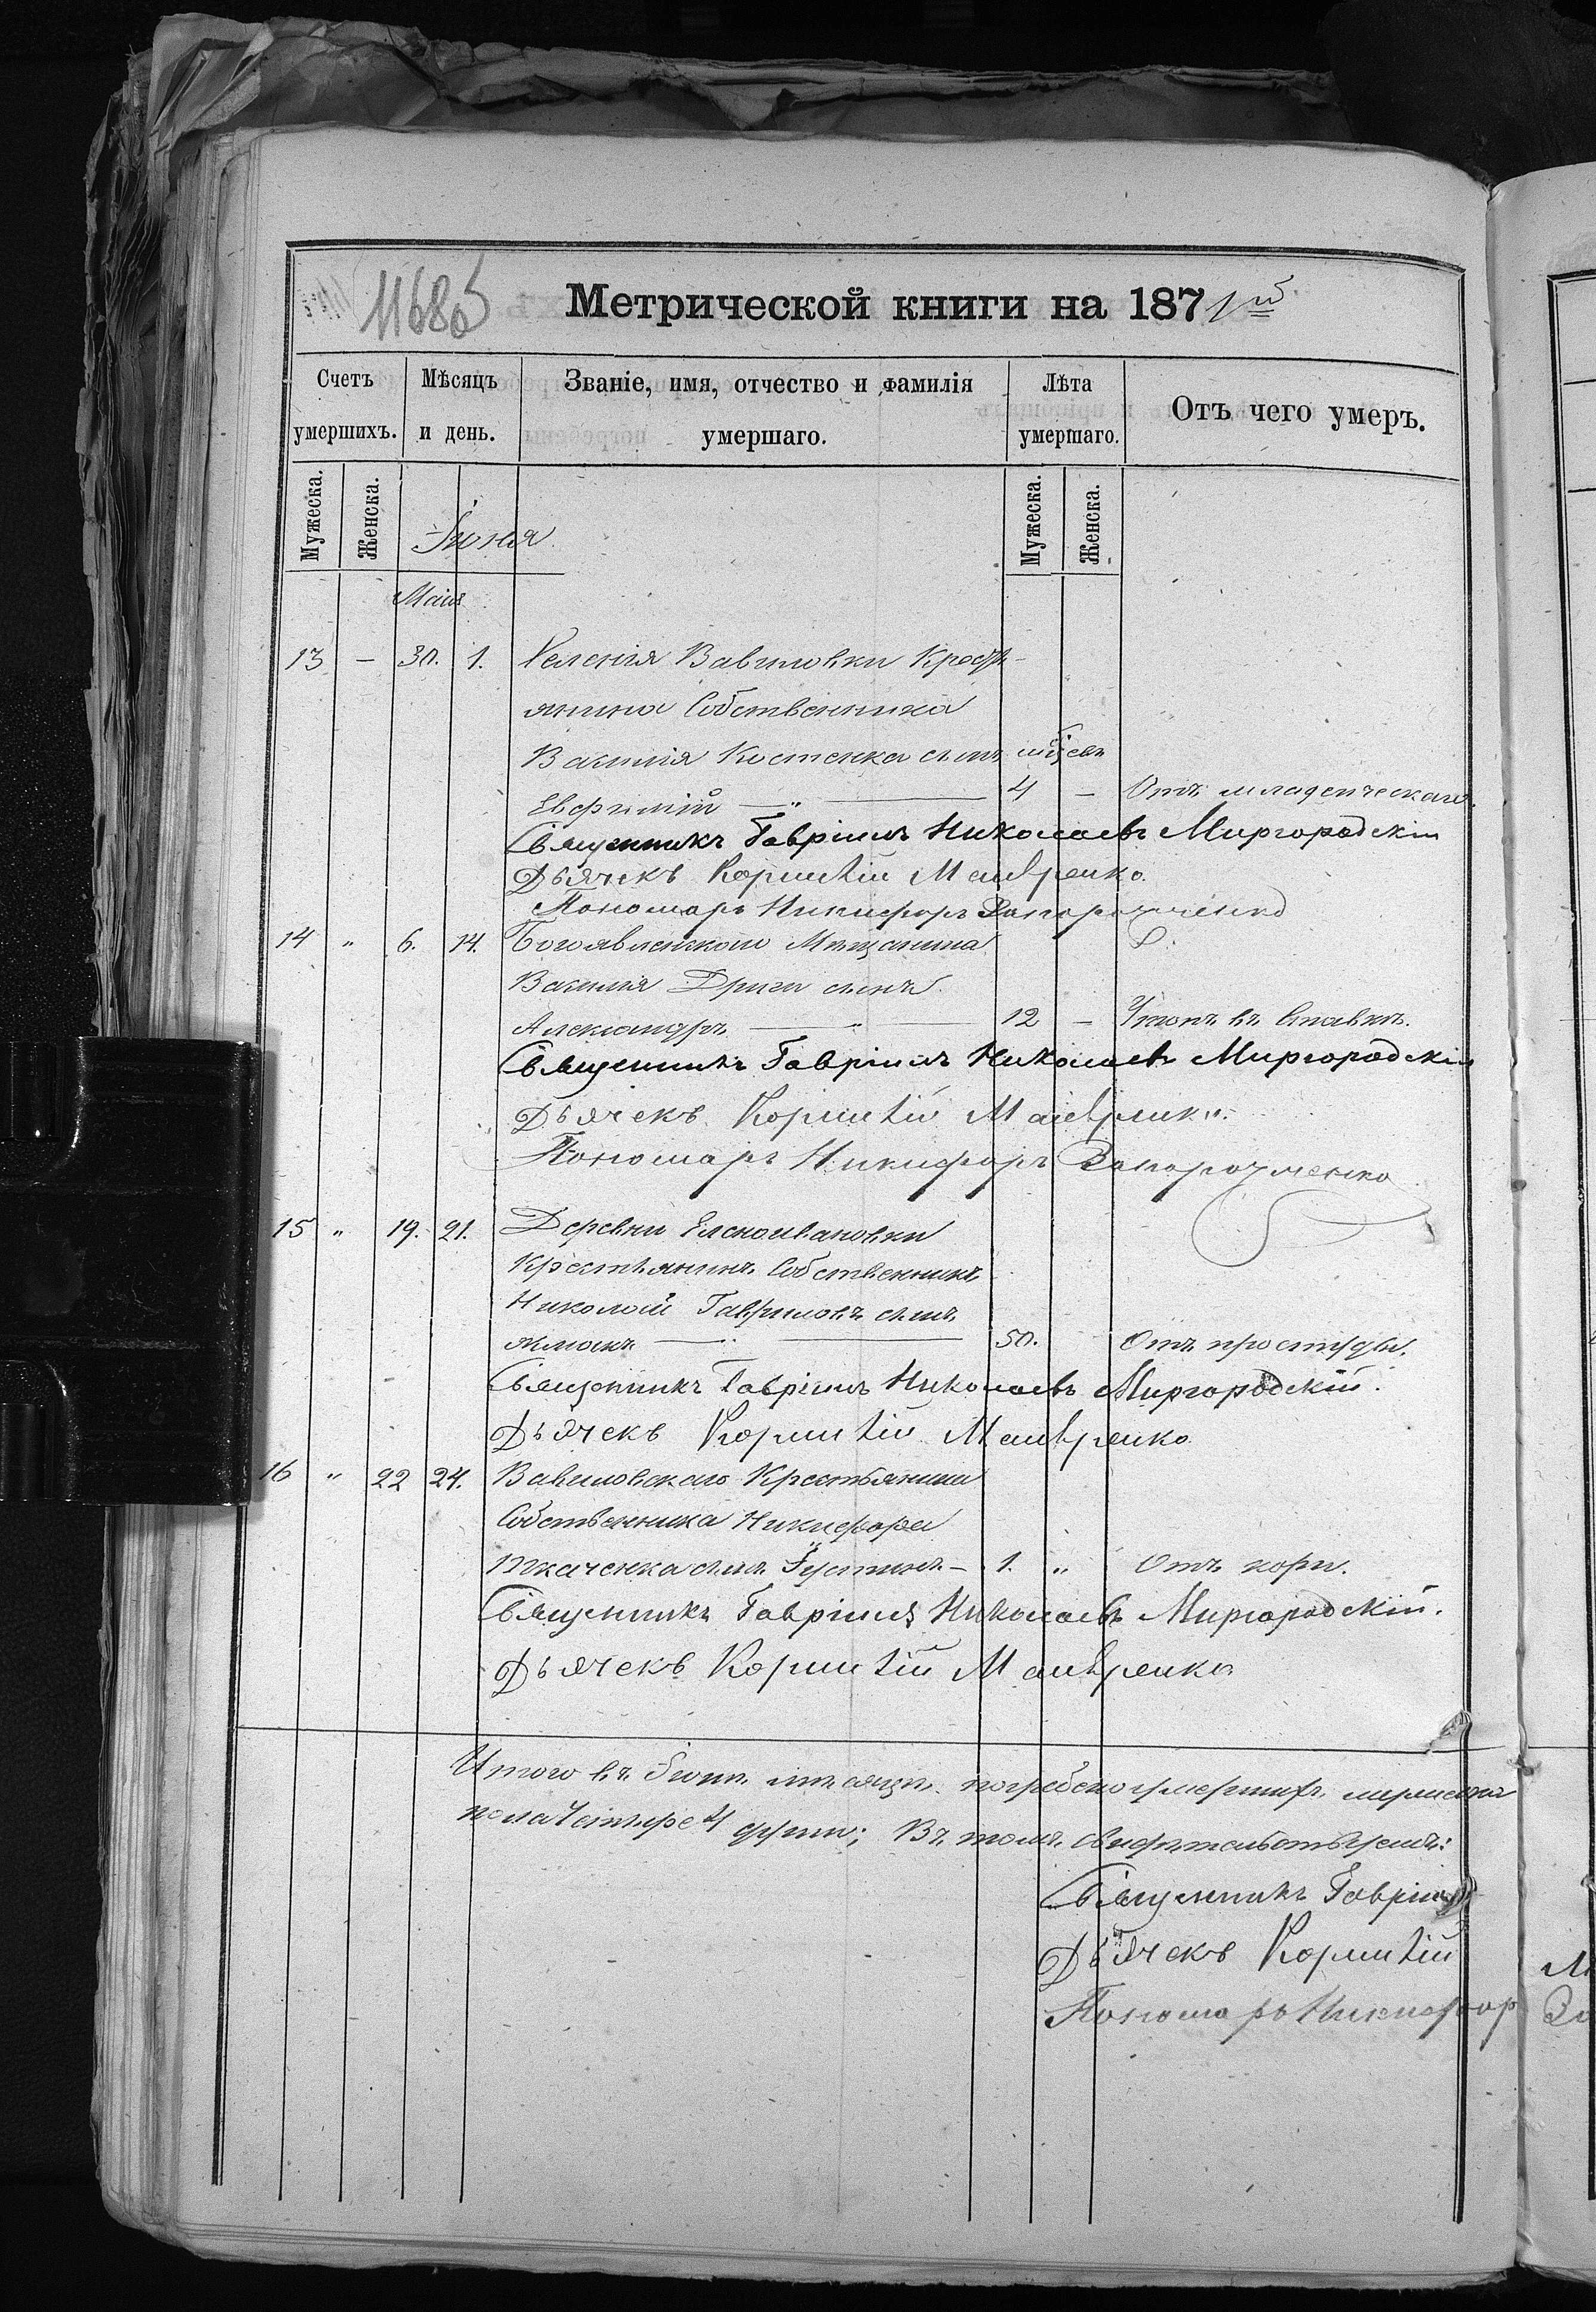 1168об
Метрической книги на 1871й
Счетъ умершихъ.
Мѣсяцъ и день.
Званіе, имя, отчество и фамилія умершаго.
Лѣта умершаго.
Отъ чего умеръ.
Мужеска.
Женска.
Іюня
Мужеска.
Женска.
Маія
13 — 30. 1. Селенія Вавиловки Кресть-
янина Собственника
Василія Костенка сынъ мѣсев
Евфимій — " — 4 — Отъ младенческаго.
Священникъ Гавріилъ Николаевъ Миргородскій
Дьячекъ Корнилій Маивренко.
Пономарь Никифоръ Запорожченко
14 " 6. 14. Богоявленского Мѣщанина
Василія Дриги сынъ
Александръ — " — 12 — Утопъ въ Ставкѣ.
Священникъ Гавріилъ Николаевъ Миргородскій
Дьячекъ Корнилій Маивренко.
Пономарь Никифоръ Запорожченко
15 " 19. 21. Деревни Еленоивановки
Крестьянинъ Собственникъ
Николай Гавриловъ сынъ
— " — 50. Отъ простуды.
Священникъ Гавріилъ Николаевъ Миргородскій.
Дьячекъ Корнилій Маивренко
16 " 22 24. Вавиловскаго Крестьянина
Собственника Никифора
Ткаченка сынъ Іустинъ — 1. " Отъ кори.
Священникъ Гавріилъ Николаевъ Миргородскій.
Дьячекъ Корнилій Маивренко
Итого въ Іюнѣ мѣсяцѣ погребено умершихъ мужеска
пола Четыре 4 души; Въ томъ свидѣтельствуемъ:
Священникъ Гавріилъ
Дьячекъ Корнилій
Пономарь Никифор